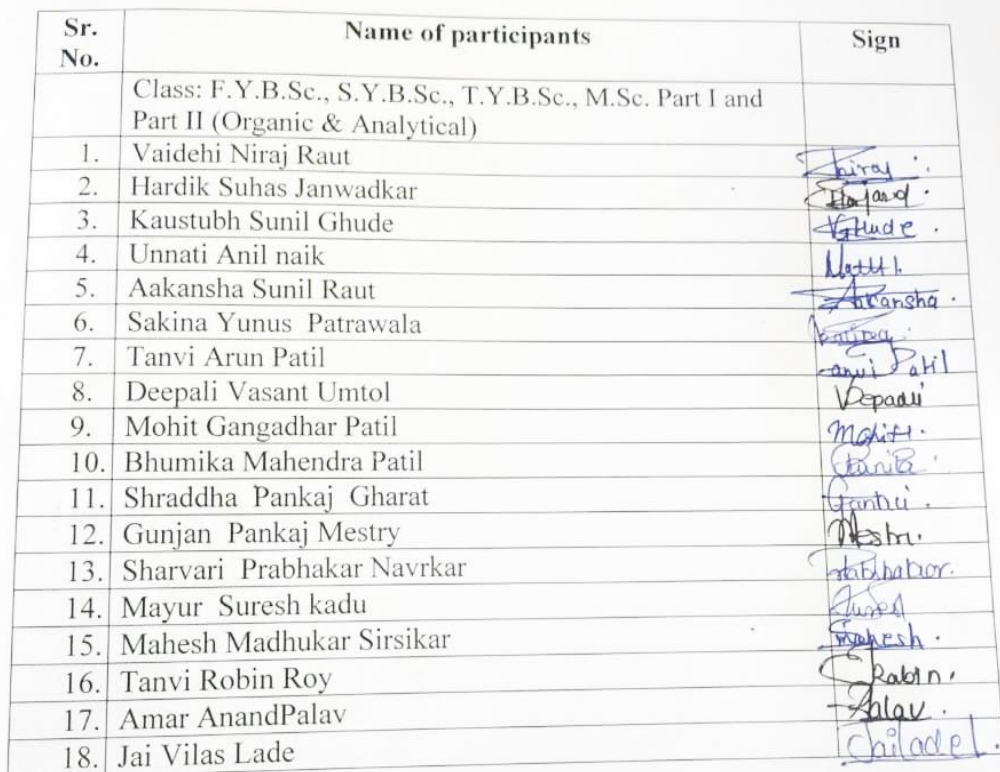 Sr. No. Name of participants Sign
Class: F.Y.B.Sc., S.Y.B.Sc., T.Y.B.Sc., M.Sc. Part I and
Part II (Organic & Analytical)
1. Vaidehi Niraj Raut
2. Hardik Suhas Janwadkar
3. Kaustubh Sunil Ghude
4. Unnati Anil naik
5. Aakansha Sunil Raut Aakansha
6. Sakina Yunus Patrawala
7. Tanvi Arun Patil Tanvi Patil
8. Deepali Vasant Umtol
9. Mohit Gangadhar Patil
10. Bhumika Mahendra Patil
11. Shraddha Pankaj Gharat
12. Gunjan Pankaj Mestry
13. Sharvari Prabhakar Navrkar
14. Mayur Suresh kadu
15. Mahesh Madhukar Sirsikar Mahesh
16. Tanvi Robin Roy
17. Amar AnandPalav Palav
18. Jai Vilas Lade Jailade